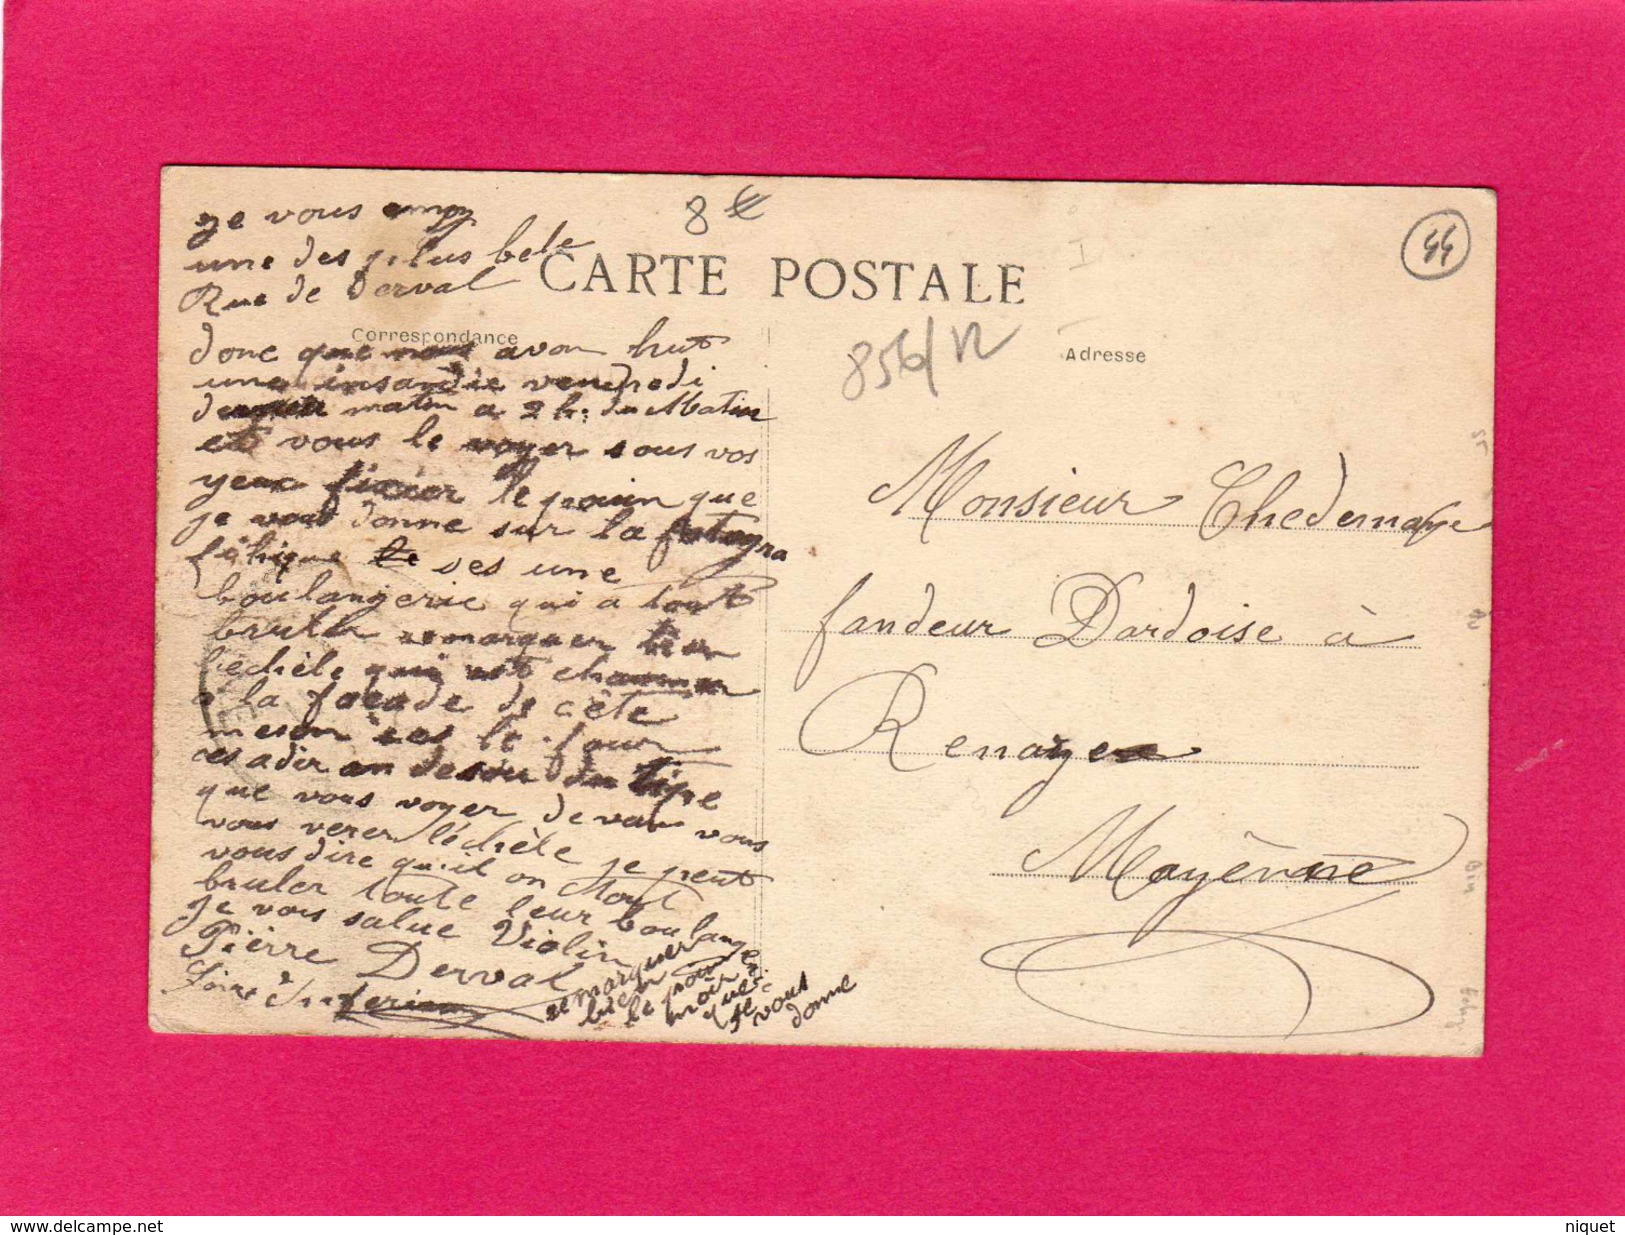 8 €
44
CARTE POSTALE
Correspondance
Adresse
856/12
je vous envoy
une des plus bele
Rue de Derval
donc que nous avon hut
une insandie vendredi
dernier matin a 2 h: du Matin
et vous le voyer sous vos
yeux fixier le poin que
je vous donne sur la fotogra
féhique le ses une
boulangerie qui a tout
bruler remarquer bien
l'echèle qui est
a la façade de cète
meson ces le four
ces adir an desou du tipe
que vous voyer devan vous
vous verer l'échèle je peut
vous dire qu'il on Mout
bruler toute leur boulange
je vous salue Violin
Pièrre Derval
Loire Inferieur
remarquer
bien
le poin
noir
que
je
vous
donne
Monsieur Chedemaye
fandeur Dardoise à
Renaze
Mayènne
www.delcampe.net
niquet